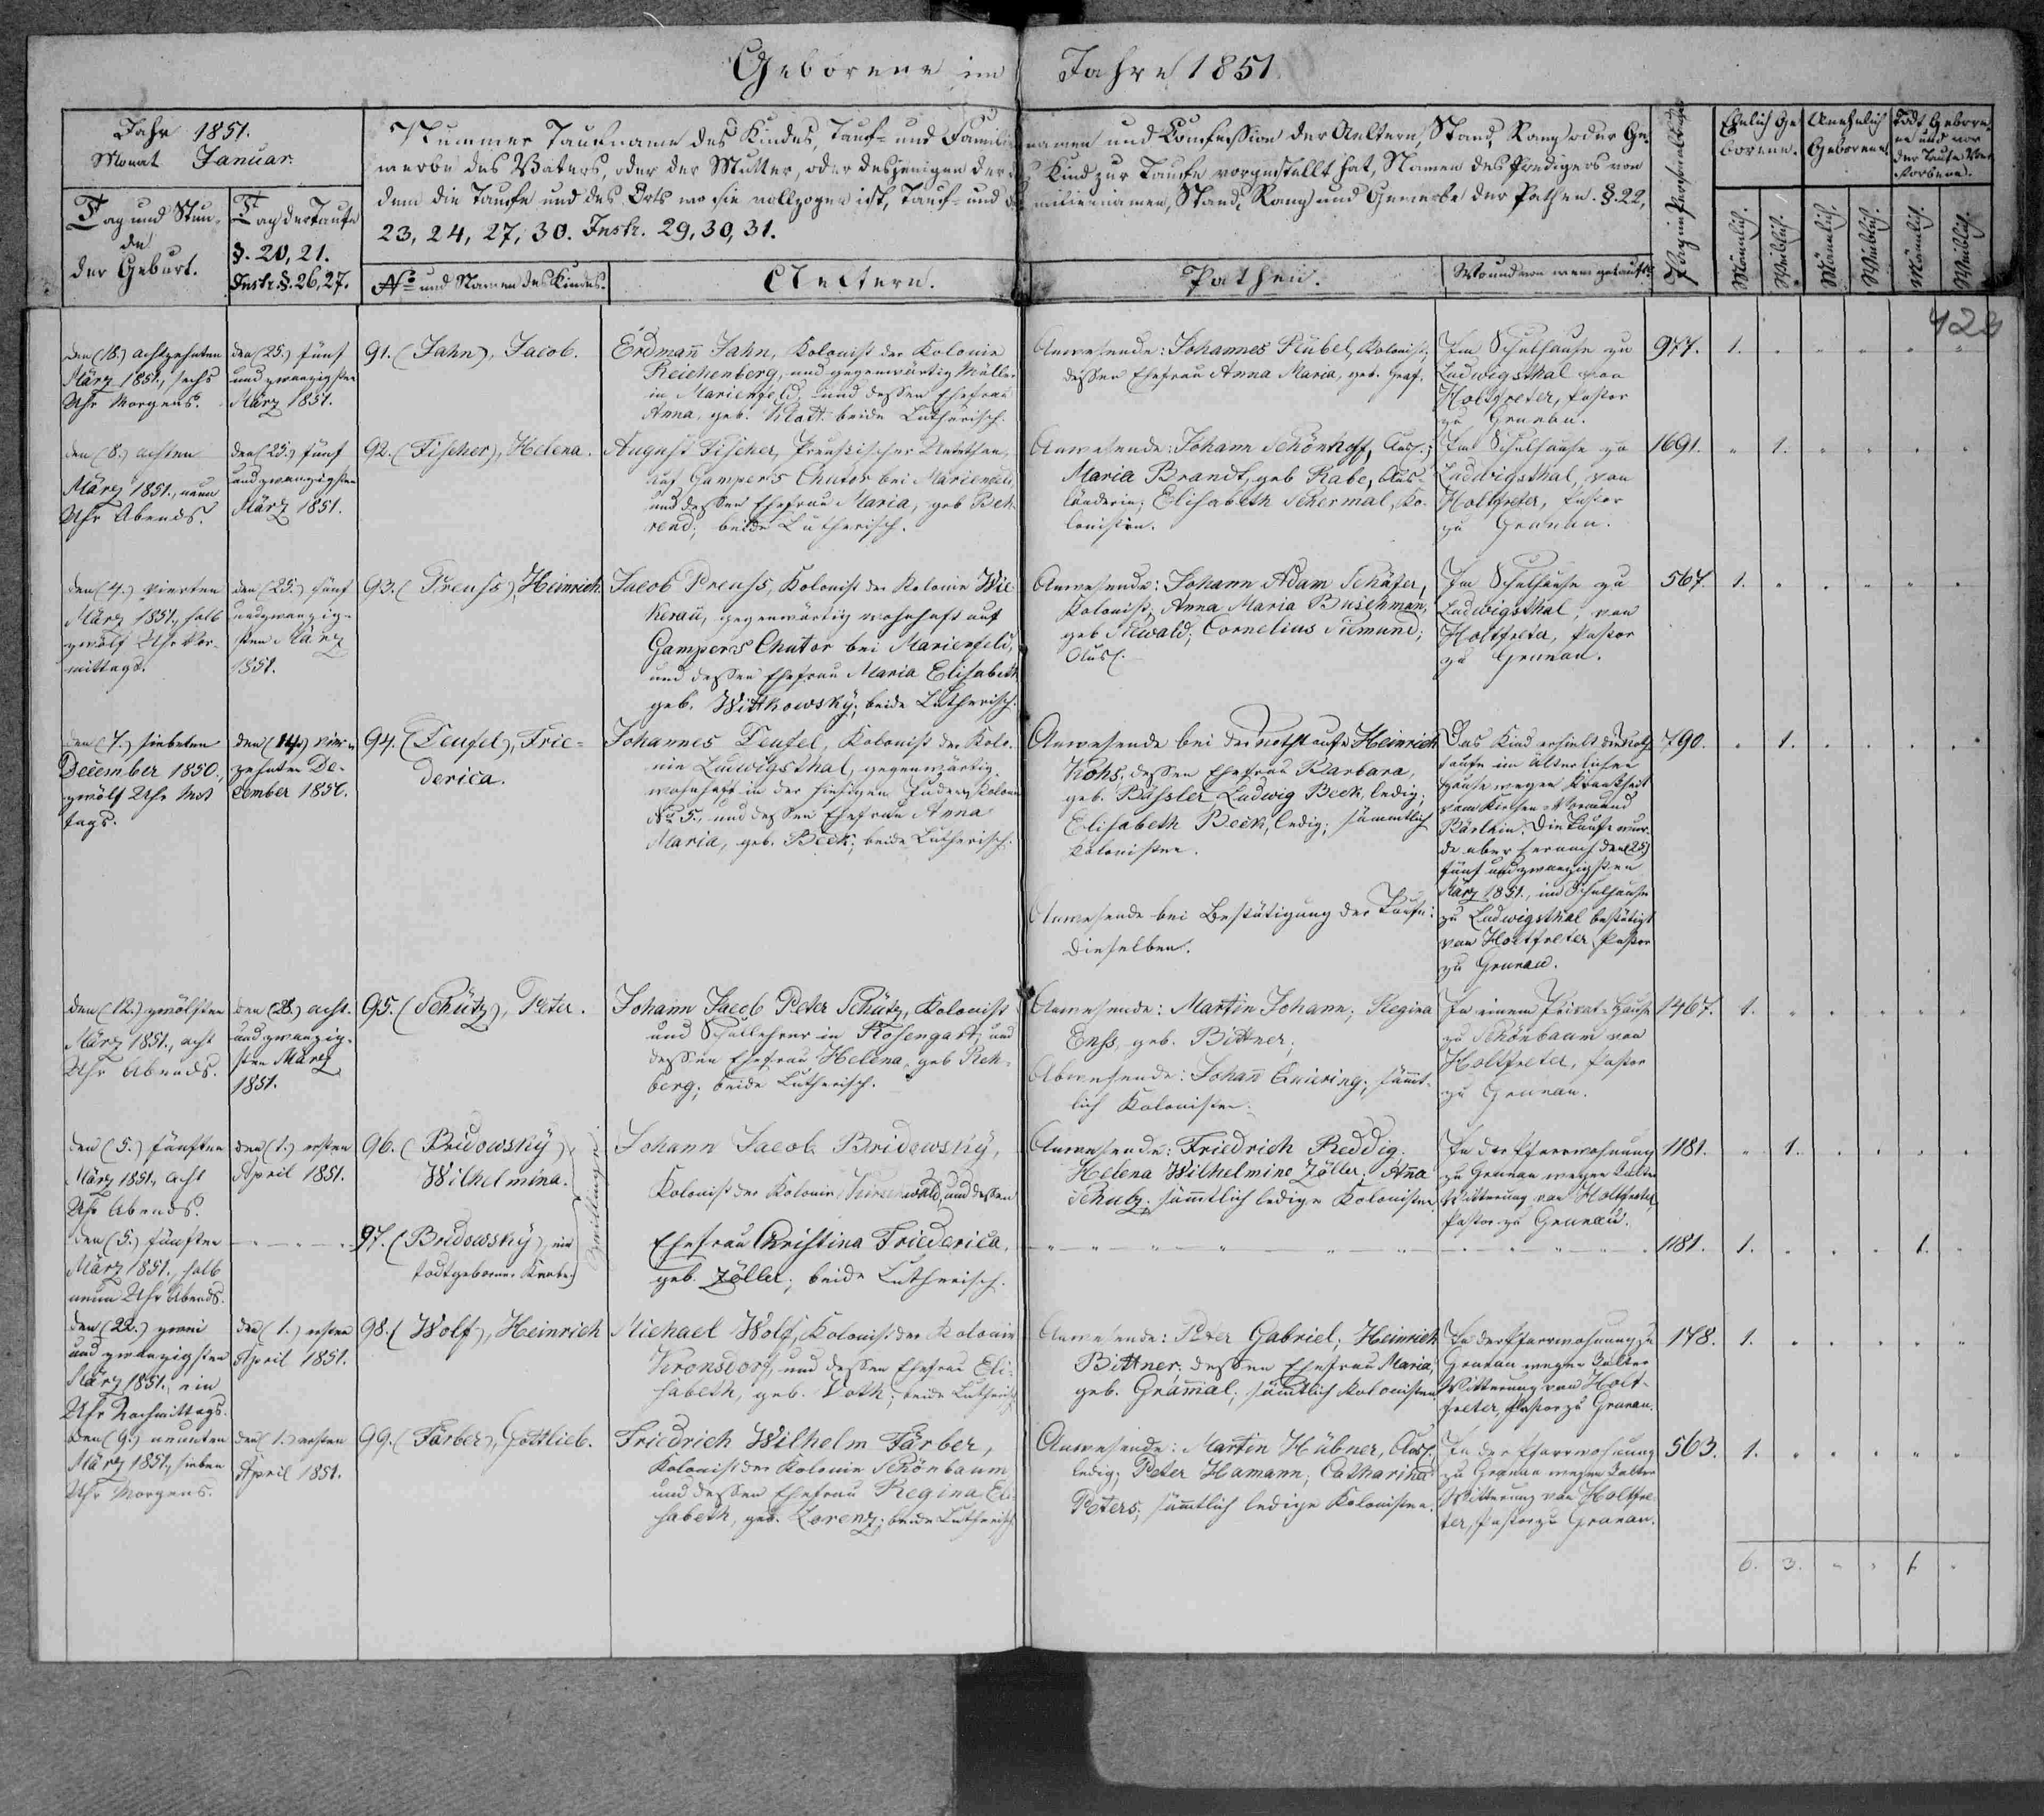 Geborene im Jahre 1851.
Jahr 1851.
Monat Januar.
Tag und Stun-
de
der Geburt.
Tag der Taufe
§. 20, 21.
Instr. §. 26, 27.
Nummer Taufname des Kindes, Tauf- und Familiennamen und Confession der Aeltern, Stand, Rang oder Ge-
werbe des Vaters, oder der Mutter, oder desjenigen der das Kind zur Taufe vorgestellt hat, Namen des Predigers von
dem die Taufe und des Orts wo sie vollzogen ist, Tauf- und Familiennamen, Stand, Rang und Gewerbe der Pathen. §. 22,
23, 24, 27, 30. Instr. 29, 30, 31.
No und Namen des Kindes.
Aeltern.
Pathen.
Wo und von wem getauft.
Pagina Personalbuch
Ehelich Ge-
borene.
Unehelich
Geborene.
Todt Gebore-
ne und vor
der Taufe Ver-
storbene.
Männlich. Weiblich. Männlich. Weiblich. Männlich. Weiblich.
den (18.) achtzehnten
März 1851., sechs
Uhr Morgens.
den (25.) fünf
und zwanzigsten
März 1851.
91. (Jahn), Jacob.
Erdmann Jahn, Kolonist der Kolonie
Reichenberg, und gegenwärtig Müller
in Marienfeld, und dessen Ehefrau
Anna, geb. Klatt. beide Lutherisch.
Anwesende: Johannes Rübel, Kolonist,
dessen Ehefrau Anna Maria, geb. Graf.
Im Schulhause zu
Ludwigsthal von
Holtfreter, Pastor
zu Grunau.
977. 1.
den (8.) achten
März 1851., neun
Uhr Abends.
den (25.) fünf
und zwanzigsten
März 1851.
92. (Fischer), Helena.
August Fischer, Preußischer Unterthan,
auf Gampers Chutor bei Marienfeld,
und dessen Ehefrau Maria, geb Beh-
rend; beide Lutherisch.
Anwesende: Johann Schönhoff, Ausl.;
Maria Brandt, geb Rabe, Aus-
länderin; Elisabeth Schermal, Ko-
lonistin.
Im Schulhause zu
Ludwigsthal, von
Holtfreter, Pastor
zu Grunau.
1691. 1.
den (4.) vierten
März 1851., halb
zwölf Uhr Vor-
mittags.
den (25.) fünf
und zwanzig-
sten März
1851.
93. (Preuss), Heinrich.
Jacob Preuss, Kolonist der Kolonie Wic-
kerau, gegenwärtig wohnhaft auf
Gampers Chutor bei Marienfeld,
und dessen Ehefrau Maria Elisabeth
geb. Wittkowsky; beide Lutherisch.
Anwesende: Johann Adam Schäfer,
Kolonist; Anna Maria Buschman,
geb Ewald; Cornelius Siemund;
Ausl.
Im Schulhause zu
Ludwigsthal, von
Holtfreter, Pastor
zu Grunau.
567. 1.
den (7.) siebenten
December 1850.,
zwölf Uhr Mit-
tags.
den (14.) vier-
zehnten De-
cember 1850.
94. (Teufel), Frie-
derica.
Johannes Teufel, Kolonist der Kolo-
nie Ludwigsthal, gegenwärtig
wohnhaft in der hiesigen Juden Kolonie
No 5., und dessen Ehefrau Anna
Maria, geb. Beck; beide Lutherisch.
Anwesende bei der Nothtaufe Heinrich
Kohs, dessen Ehefrau Barbara,
geb. Bässler, Ludwig Beck, ledig;
Elisabeth Beck, ledig; sämmtlich
Kolonisten.
Anwesende bei Bestätigung der Taufe:
dieselben.
Das Kind erhielt die Noth-
taufe im älterlichen
Hause wegen Krankheit
vom Kirchen-Vormund
Die Taufe wur-
de aber hernach den (25.)
fünf und zwanzigsten
März 1851., im Schulhause
zu Ludwigsthal bestätigt
von Holtfreter, Pastor
zu Grunau.
790. 1.
den (12.) zwölften
März 1851., acht
Uhr Abends.
den (28.) acht-
und zwanzig-
sten März
1851.
95. (Schütz), Peter.
Johann Jacob Peter Schütz, Kolonist
und Schullehrer in Rosengart, und
dessen Ehefrau Helena, geb Reh-
berg; beide Lutherisch.
Anwesende: Martin Johann; Regina
Enss, geb. Bittner;
Abwesende: Johann Quiering; sämt-
lich Kolonisten.
In einem Privat-Hause
zu Schönbaum von
Holtfreter, Pastor
zu Grunau.
1467. 1.
den (5.) fünften
März 1851., acht
Uhr Abends.
den (1.) ersten
April 1851.
96. (Bridowsky),
Wilhelmina.
Zwillinge.
Johann Jacob Bridowsky,
Kolonist der Kolonie Kirschwald, und dessen
Anwesende: Friedrich Reddig.
Helena Wilhelmine Zöller; Anna
Schulz; sämmtlich ledige Kolonisten.
In der Pfarrwohnung
zu Grunau wegen kalter
Witterung von Holtfreter,
Pastor zu Grunau.
1181. 1.
den (5.) fünften
März 1851., halb
neun Uhr Abends.
97. (Bridowsky), ein
todtgeborner Knabe.
Ehefrau Christina Friederica,
geb. Zöller; beide Lutherisch.
1181. 1. 1.
den (22.) zwei
und zwanzigsten
März 1851., ein
Uhr Nachmittags.
den (1.) ersten
April 1851.
98. (Wolf), Heinrich
Michael Wolf, Kolonist der Kolonie
Kronsdorf, und dessen Ehefrau Eli-
sabeth, geb. Voth; beide Lutherisch
Anwesende: Peter Gabriel; Heinrich
Bittner, dessen Ehefrau Maria,
geb. Grammal; sämtlich Kolonisten
In der Pfarrwohnung zu
Grunau wegen kalter
Witterung von Holt-
freter, Pastor zu Grunau.
178. 1.
den (9.) neunten
März 1851., sieben
Uhr Morgens.
den (1.) ersten
April 1851.
99. (Färber), Gottlieb.
Friedrich Wilhelm Färber,
Kolonist der Kolonie Schönbaum,
und dessen Ehefrau Regina Eli-
sabeth, geb. Lorenz; beide Lutherisch
Anwesende: Martin Hübner, Ausl.
ledig; Peter Hamann; Catharina
Peters; sämmtlich ledige Kolonisten.
In der Pfarrwohnung
zu Grunau wegen kalter
Witterung von Holtfre-
ter, Pastor zu Grunau.
563. 1.
6. 3. " " 1. "